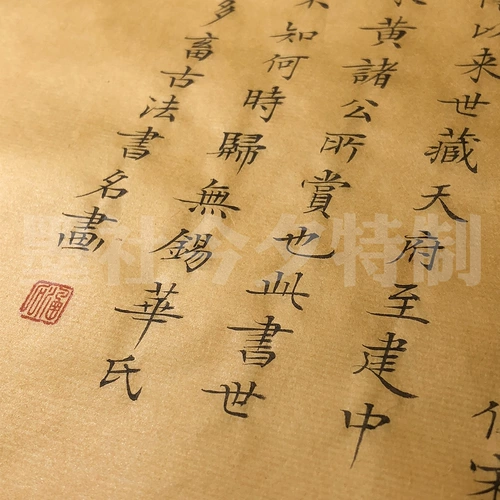 以来世藏天府至建中
黄諸公所賞也此書世
知何時歸無錫華氏
多畜古法書名畫
墨社今夕特制